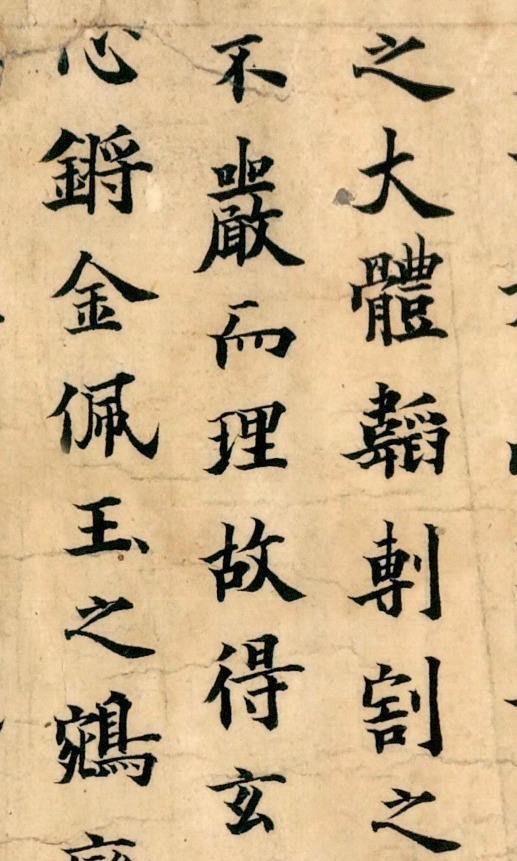 之大體韜剸割之
不嚴而理故得玄
心鏘金佩玉之鵷